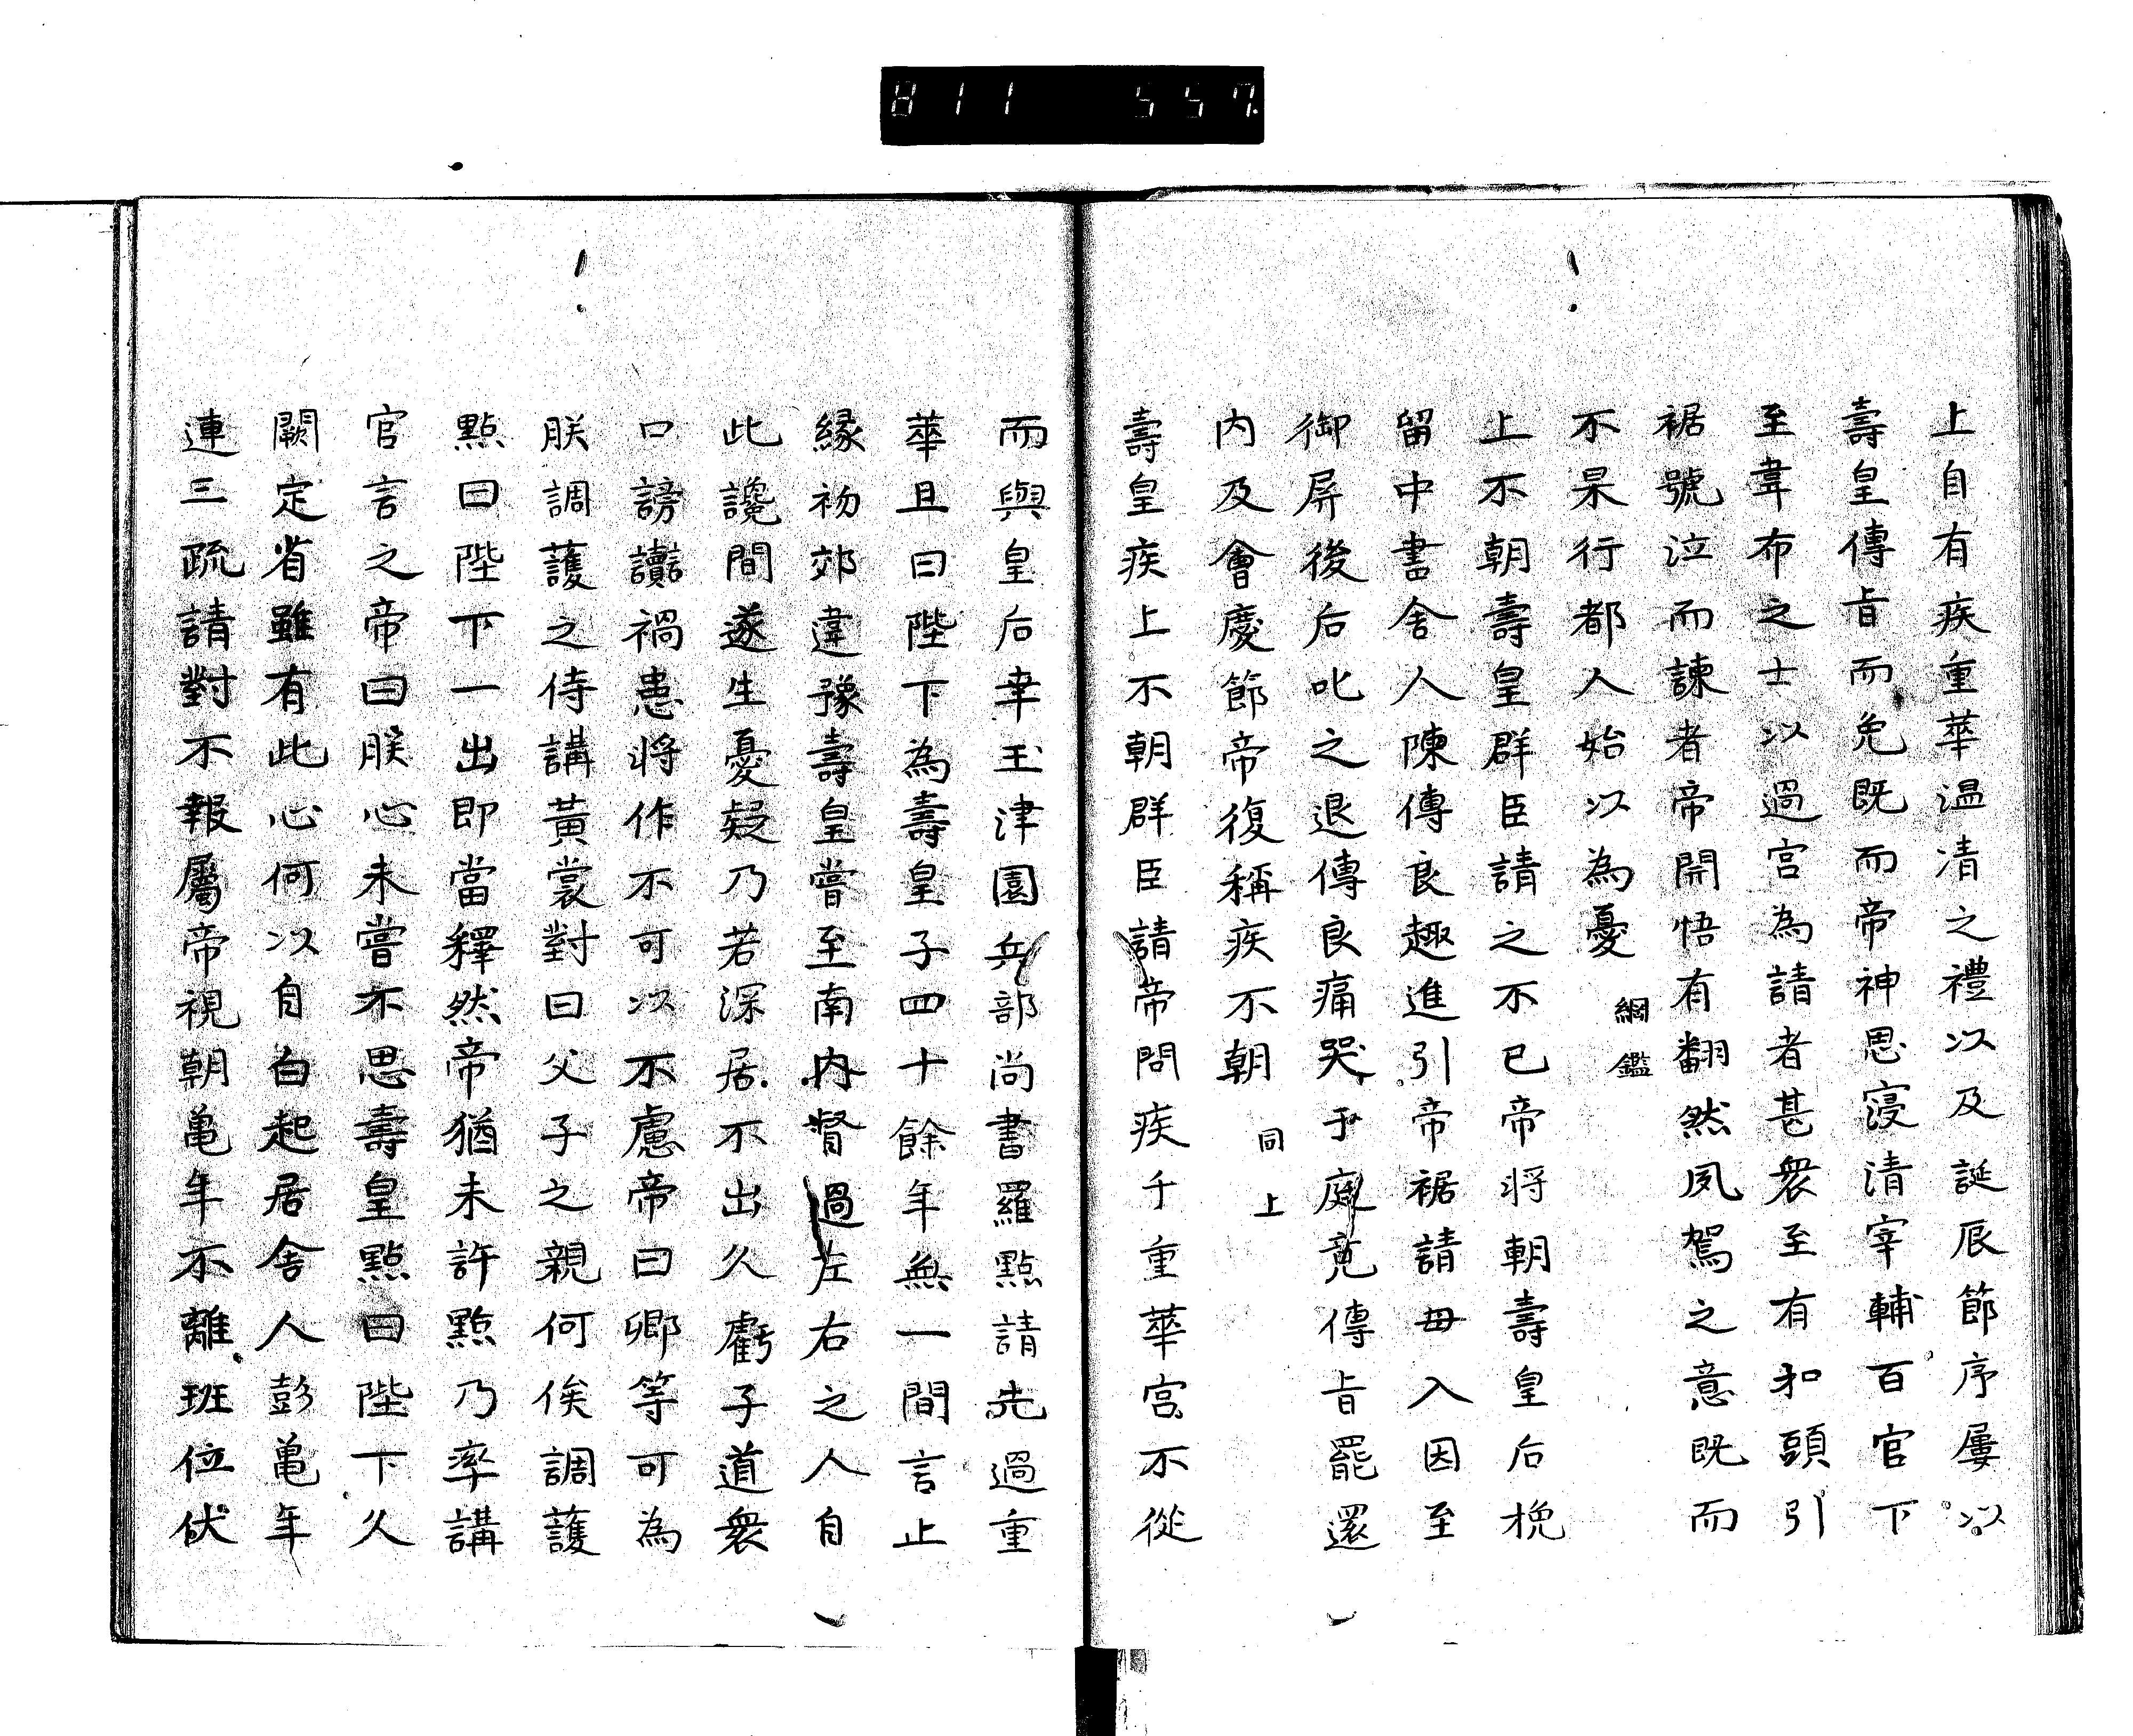 811 557
上自有疾重華温凊之禮以及誕辰節序屢以
壽皇傳旨而免既而帝神思寖清宰輔百官下
至韋布之士以過宮為請者甚衆至有扣頭引
裾號泣而諫者帝開悟有翻然夙駕之意既而
不果行都人始以為憂 網鑑
上不朝壽皇群臣請之不已帝将朝壽皇后挽
留中書舍人陳傳良趣進引帝裾請毋入因至
御屏後后叱之退傳良痛哭于庭竟傳旨罷還
内及會慶節帝復稱疾不朝 同上
壽皇疾上不朝群臣請帝問疾于重華宮不從
而與皇后幸玉津園兵部尚書羅點請先過重
華且曰陛下為壽皇子四十餘年無一間言止
緣初郊違豫壽皇嘗至南内督過左右之人自
此讒間遂生憂疑乃若深居不出久虧子道衆
口謗讟禍患将作不可以不慮帝曰卿等可為
朕調護之侍講黃裳對曰父子之親何俟調護
點曰陛下一出即當釋然帝猶未許點乃率講
官言之帝曰朕心未嘗不思壽皇點曰陛下久
闕定省雖有此心何以自白起居舍人彭亀年
連三疏請對不報屬帝視朝亀年不離班位伏